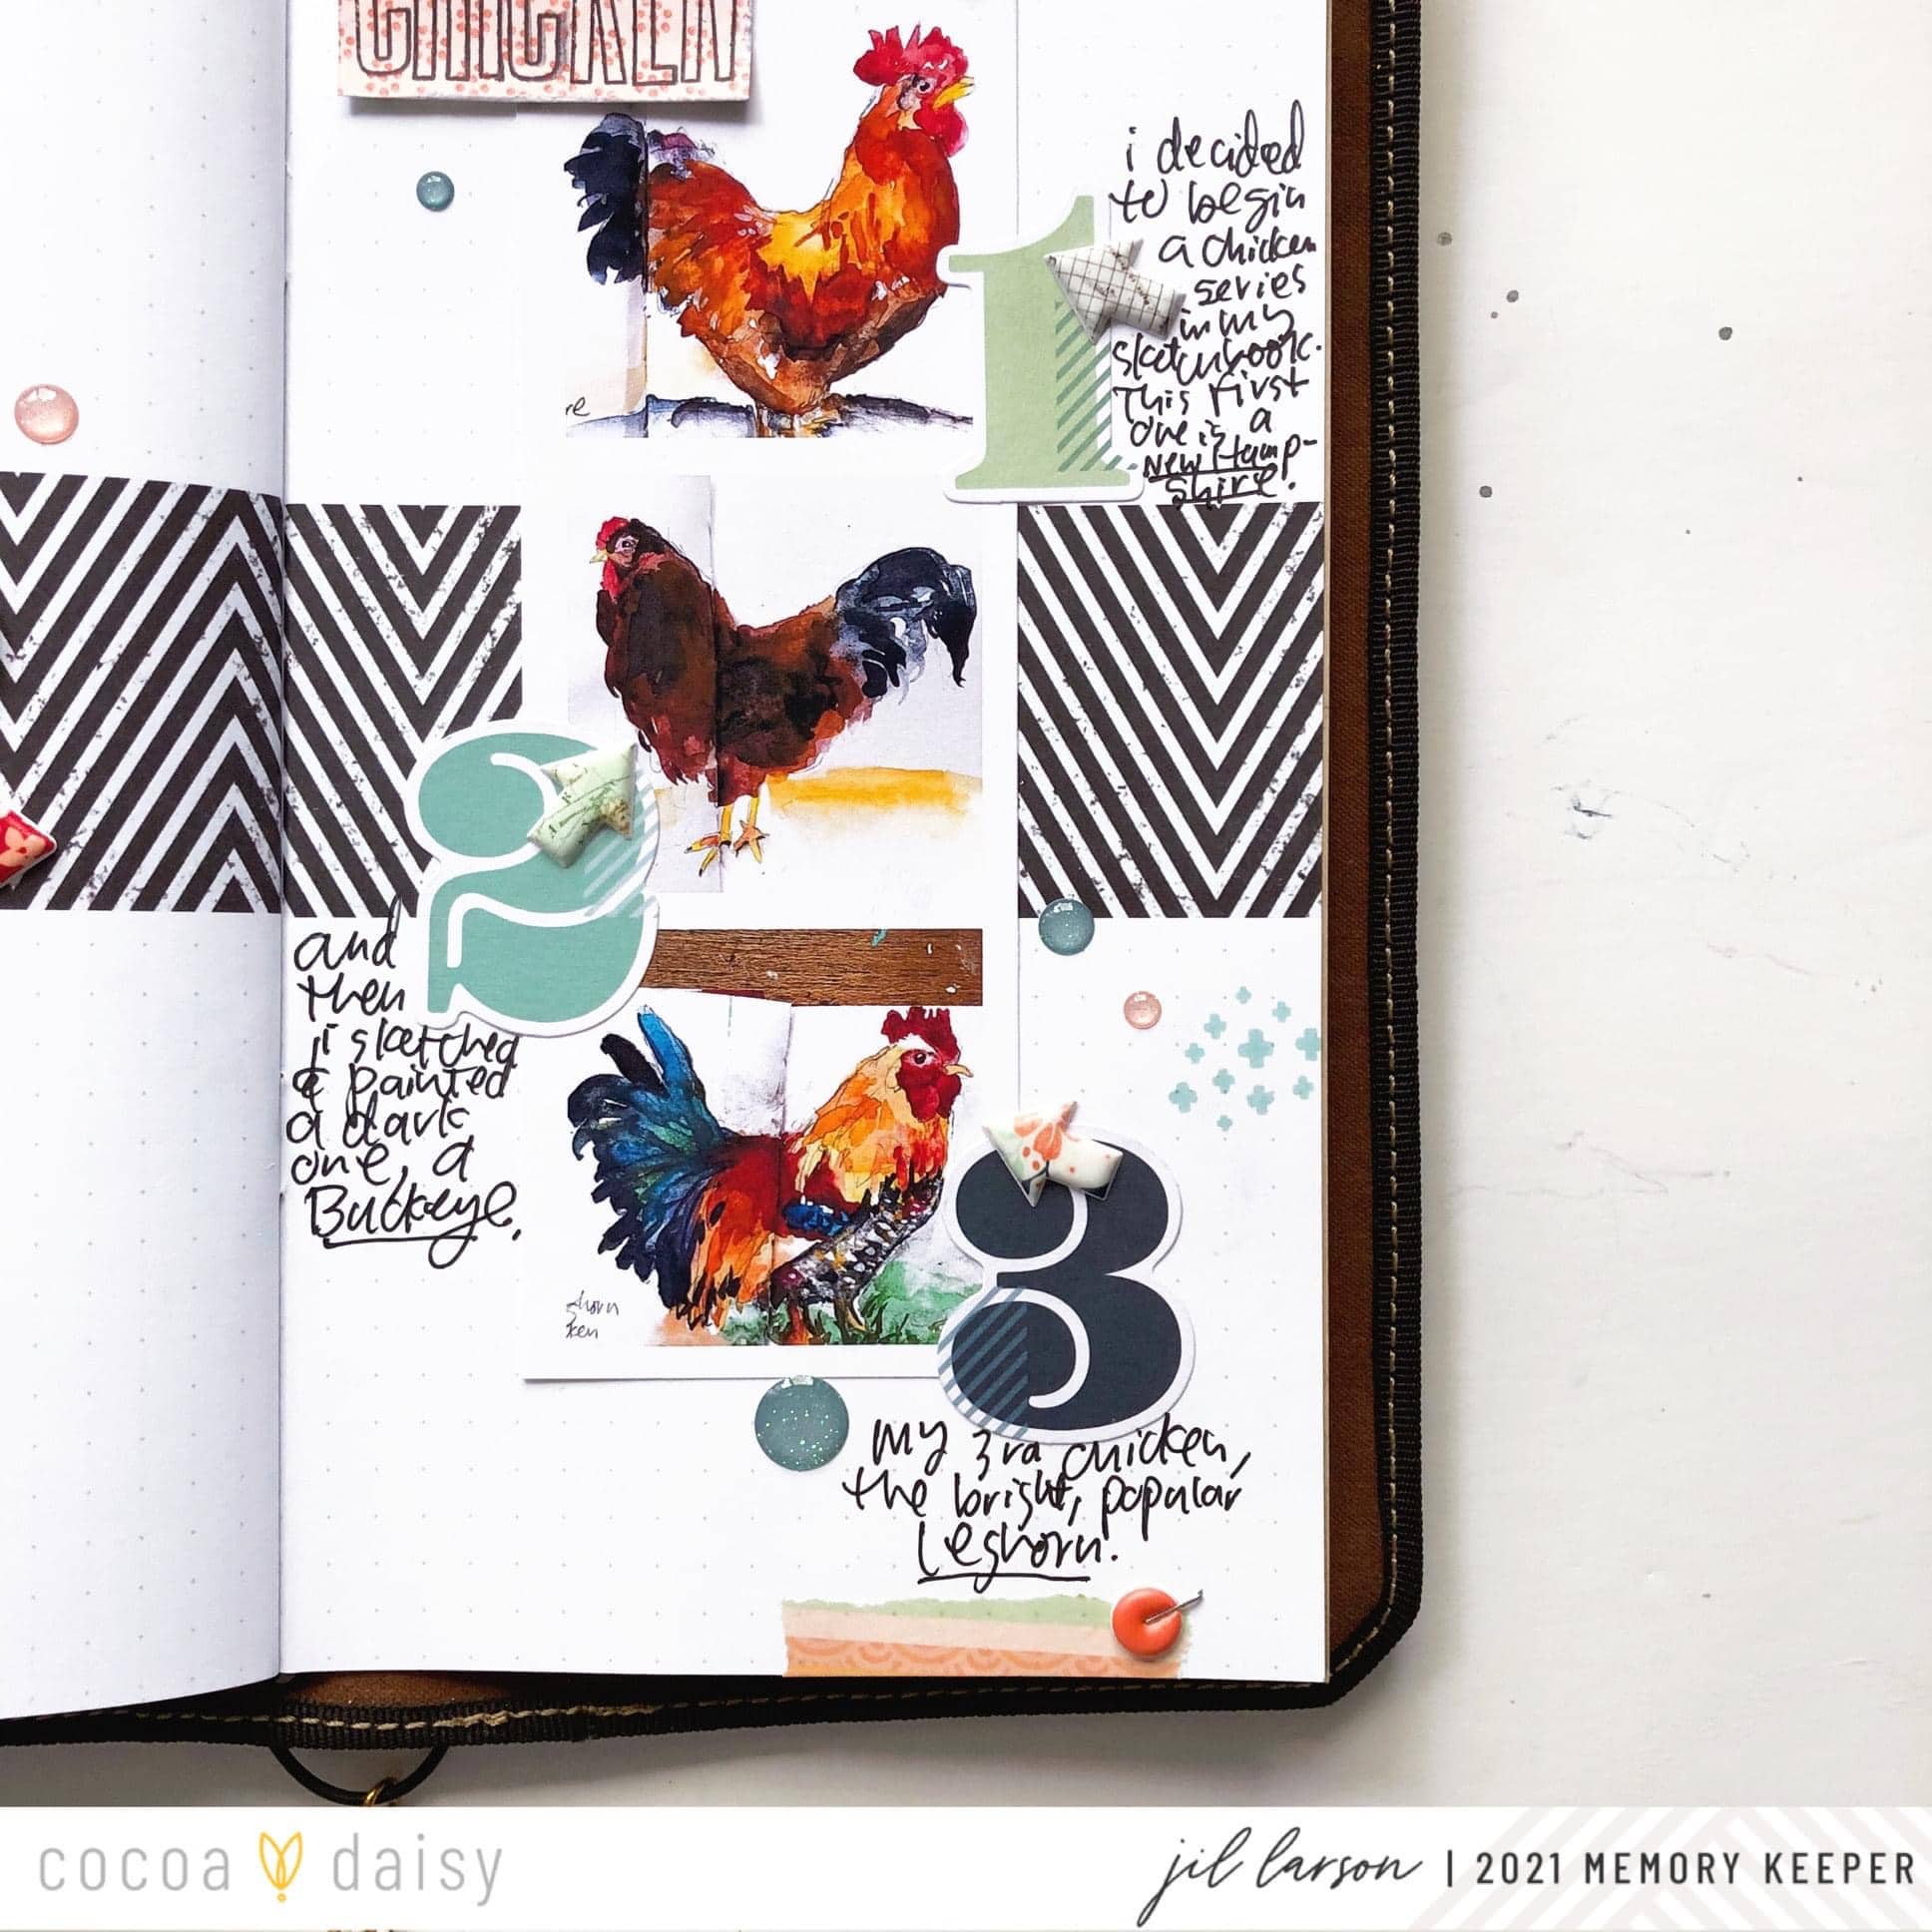 CHICKEN
i decided
to begin
a chicken
series
in my
sketchbook.
This first
one is a
New Hamp-
shire.
1
re
2
and
then
i sketched
& painted
a dark
one, a
Buckeye,
3
horn
ken
my 3rd chicken,
the bright, popular
Leghorn.
cocoa daisy
jil larson | 2021 MEMORY KEEPER